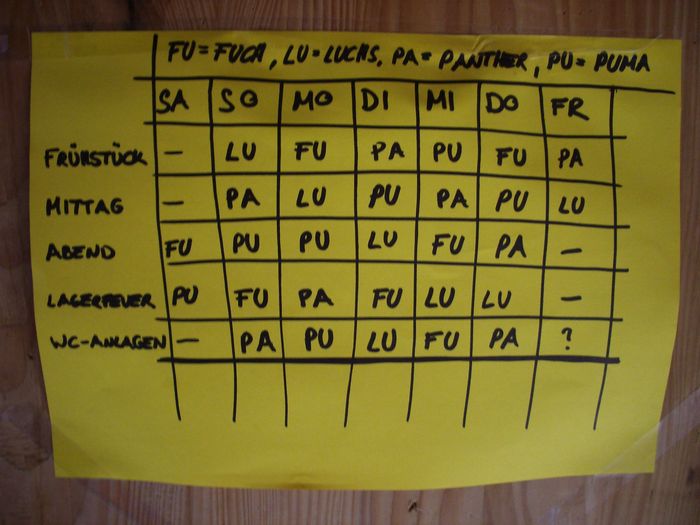 FU = FUCH, LU = LUCHS, PA = PANTHER, PU = PUMA
SA SO MO DI MI DO FR
FRÜHSTÜCK – LU FU PA PU FU PA
MITTAG – PA LU PU PA PU LU
ABEND FU PU PU LU FU PA –
LAGERFEUER PU FU PA FU LU LU –
WC-ANLAGEN – PA PU LU FU PA ?